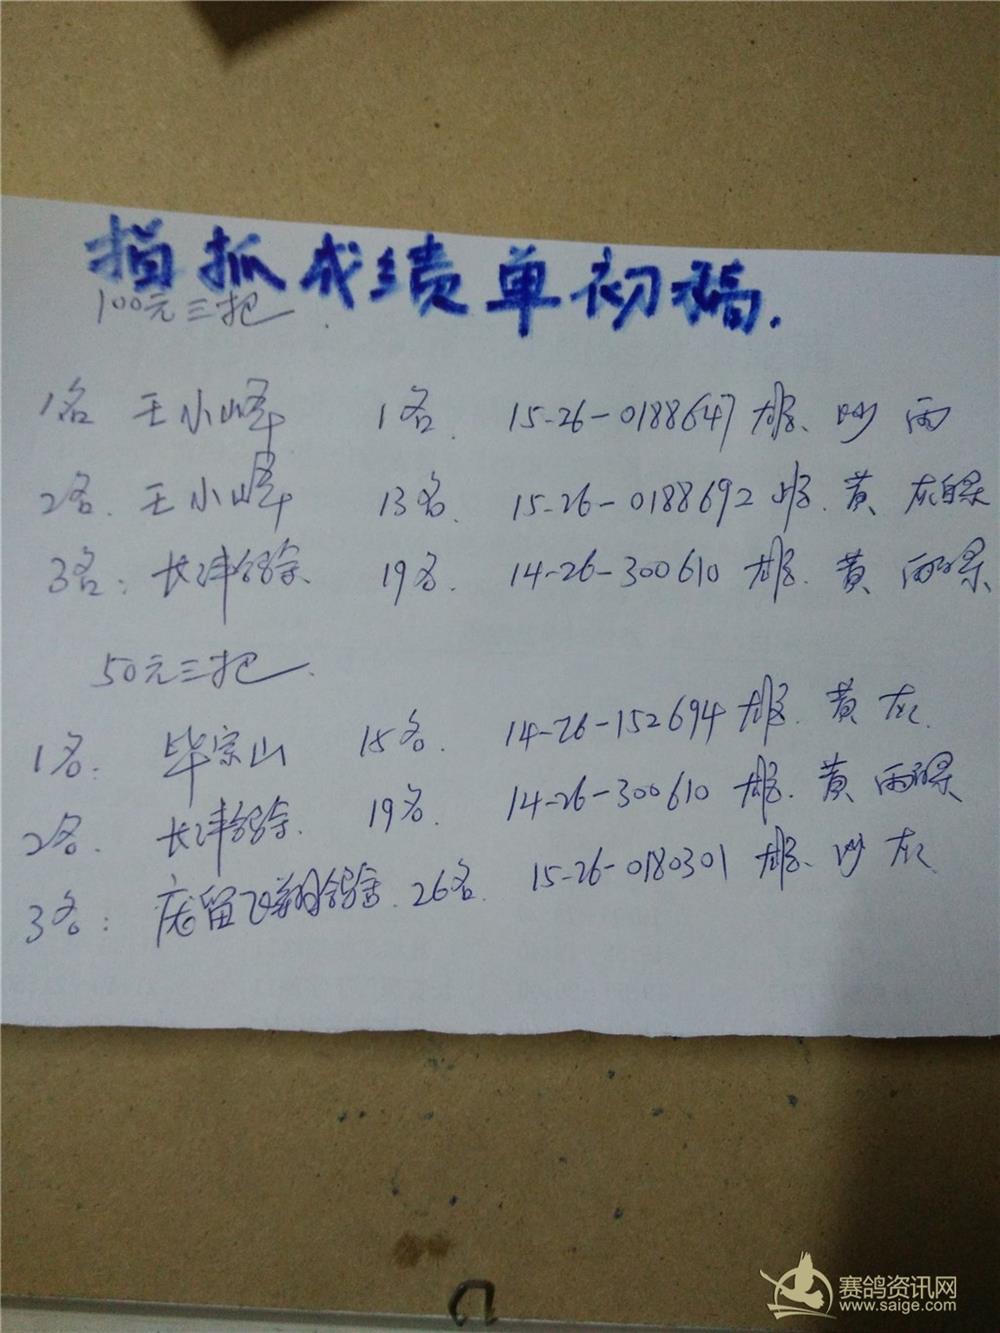 指抓成绩单初稿.
100元三把.
1名 王小峰 1名. 15-26-0188647 雄、砂 雨
2名. 王小峰 13名. 15-26-0188692 雄. 黄 灰白条
3名: 长津鸽舍. 19名. 14-26-300610 雄. 黄 雨白条
50元三把.
1名: 毕宗山 15名. 14-26-152694 雄. 黄 灰.
2名. 长津鸽舍. 19名. 14-26-300610 雄. 黄 雨白条
3名: 留飞翔鸽舍. 26名. 15-26-0180301 雄、砂 灰.
赛鸽资讯网
www.saige.com